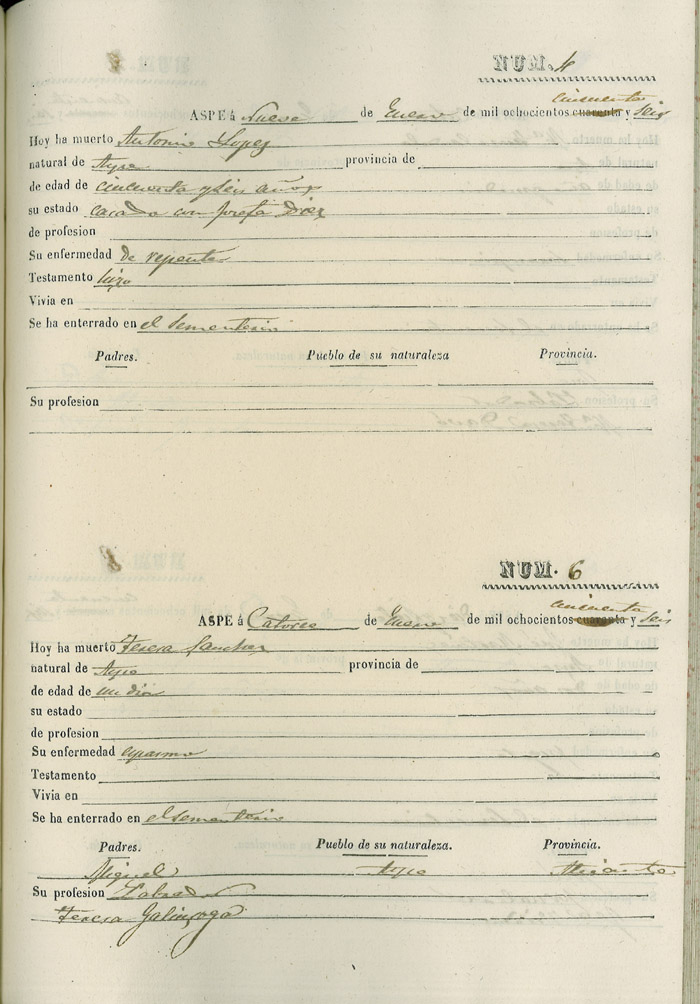 NUM. 4
cincuenta
ASPE á Nueve de Enero de mil ochocientos cuarenta y seis
Hoy ha muerto Antonio Lopez
natural de Aspe provincia de
de edad de cincuenta y seis años
su estado casado con Josefa Diez
de profesion
Su enfermedad de repente
Testamento hizo
Vivia en
Se ha enterrado en el sementerio
Padres. Pueblo de su naturaleza Provincia.
Su profesion
NUM. 6
cincuenta
ASPE á Catorce de Enero de mil ochocientos cuarenta y seis
Hoy ha muerto Teresa Sanchez
natural de Aspe provincia de
de edad de un dia
su estado
de profesion
Su enfermedad espasmo
Testamento
Vivia en
Se ha enterrado en el sementerio
Padres. Pueblo de su naturaleza. Provincia.
Miguel Aspe Alicante
Su profesion Labrador
Teresa Galinsoga